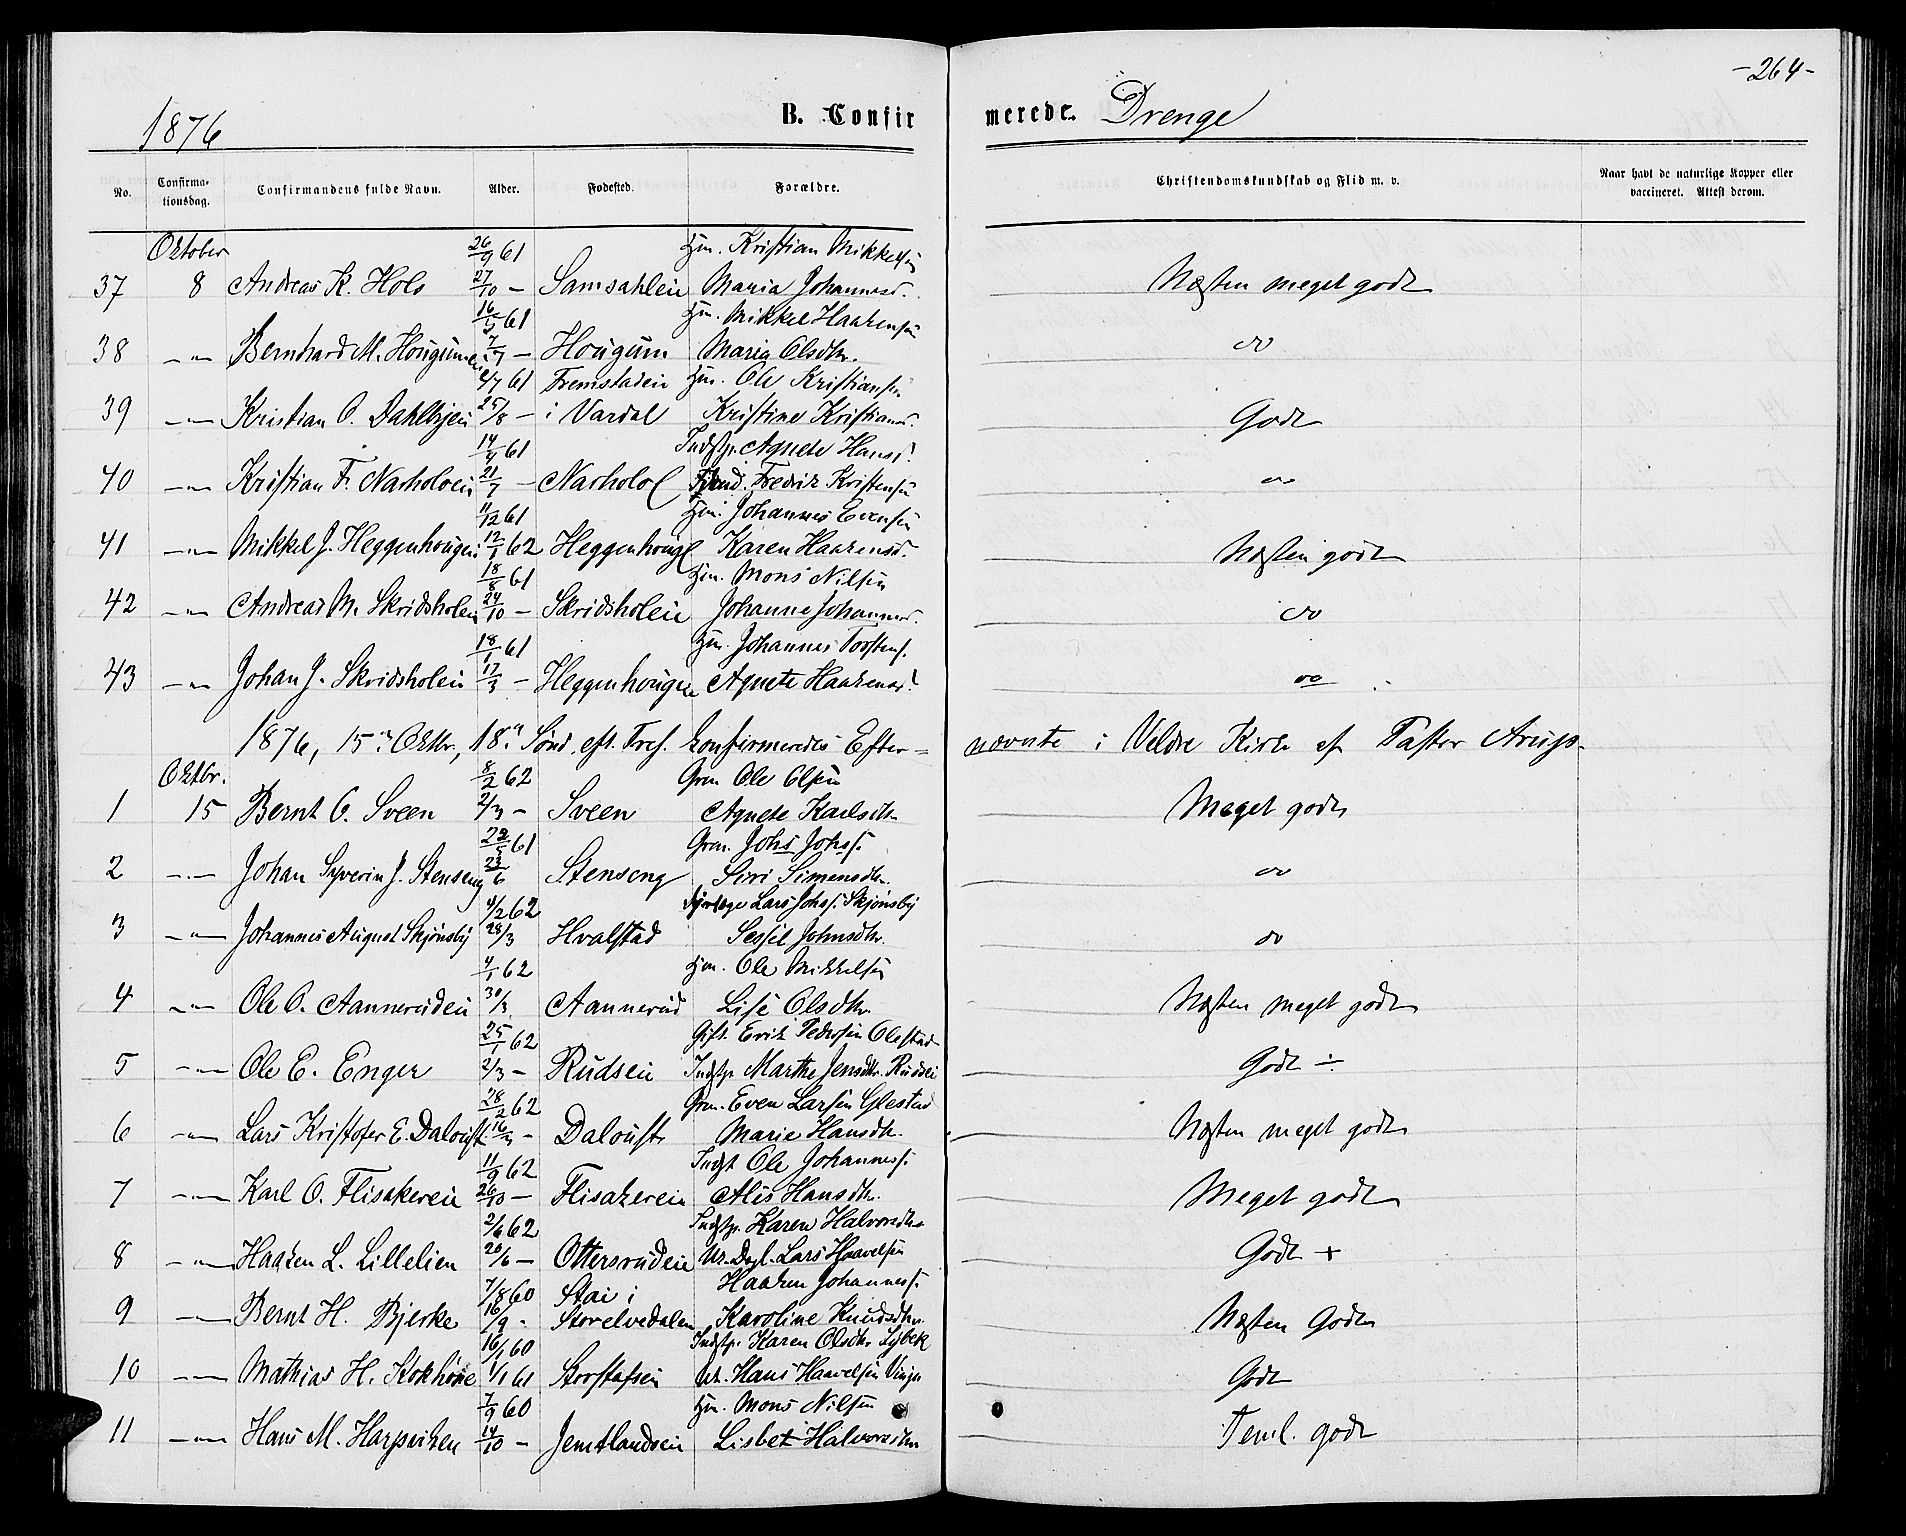 -264-
1876 B. Confirmerede. Drenge
No. Confirmationsdag. Confirmandens fulde Navn. Alder. Fødested. Forældre. Christendomskundskab og Flid m. v. Naar havt de naturlige Kopper eller vaccineret. Attest derom.
Oktober 26/9 61 Hm. Kristian Mikkelsen
37 8 Andreas K. Holo 27/10 — Samsahleie Maria Johannesd. Næsten meget godt
16/5 61 Hm. Mikkel Haakensen
38 —"— Bernhard M. Hougumeie 7/7 — Hougum Maria Olsdtr. do
2/7 61 Fremstadeie Hm. Ole Kristiansen
39 —"— Kristian O. Dahlbyeie 25/8 — i Vardal Kristine Kristiansd. Godt
14/4 61 Indstp. Agnete Hansd.
40 —"— Kristian F. Narholoeie 21/7 — Narholo Fredrik Kristensen do
11/12 61 Hm. Johannes Evensen
41 —"— Mikkel J. Heggenhougen 12/1 62 Heggenhoug Karen Haakensd. Næsten godt
18/8 61 Hm. Mons Nilsen
42 —"— Andreas M. Skridsholeie 24/10 — Skridsholeie Johanne Johannesd. do
18/1 61 Hm. Johannes Torstens.
43 —"— Johan J. Skridsholeie 17/3 — Heggenhougen Agnete Haakensd. do
1876, 15de Oktbr., 18de Sønd. eft. Tref. konfirmeredes Efter=nævnte i Veldre Kirke af Pastor Arup.
Oktbr. 8/2 62 Grm. Ole Olsen
1 15 Bernt O. Sveen 2/3 — Sveen Agnete Karlsdtr. Meget godt
22/5 61 Grm. Johs Johs.
2 —"— Johan Syverin J. Stenseng 23/6 Stenseng Siri Simensdtr. do
4/2 62 Dyrlæge Lars Johs. Skjønsby
3 —"— Johannes August Skjønsby 28/3 Hvalstad Sessil Johnsdtr. do
4/1 62 Hm. Ole Mikkelsen
4 —"— Ole O. Aannerudeie 30/3 Aannerud Lise Olsdtr. Næsten meget godt
25/1 62 Gift. Erik Pedersen Olestad
5 —"— Ole E. Enger 2/3 — Rudseie Indstp. Marthe Jensdtr. Rudseie Godt ÷
28/2 62 Grm. Even Larsen Glestad
6 —"— Lars Kristofer E. Daloust 16/3 — Daloust Marie Hansdtr. Næsten meget godt
11/9 62 Indst Ole Johanness.
7 —"— Karl O. Flisakereie 26/10 — Flisakereie Alis Hansdtr. Meget godt
2/6 62 Indstp. Karen Halvorsdtr
8 —"— Haaken L. Lillelien 20/6 — Ottersrudeie Lars Haavelsen Godt +
7/8 60 Stai i Haaken Johanness.
9 —"— Bernt H. Bjerke 16/9 — Storelvedalen Karoline Knudsdtr. Næsten Godt
16/1 60 Indstp. Karen Olsdtr Lybek
10 —"— Mathias H. Kokhöie 1/1 61 Hans Haavelsen Godt
7/9 60 Hm. Mons Nilsen
11 —"— Hans M. Harpviken 14/10 — Jemtlandseie Lisbet Halvorsdtr Teml. godt